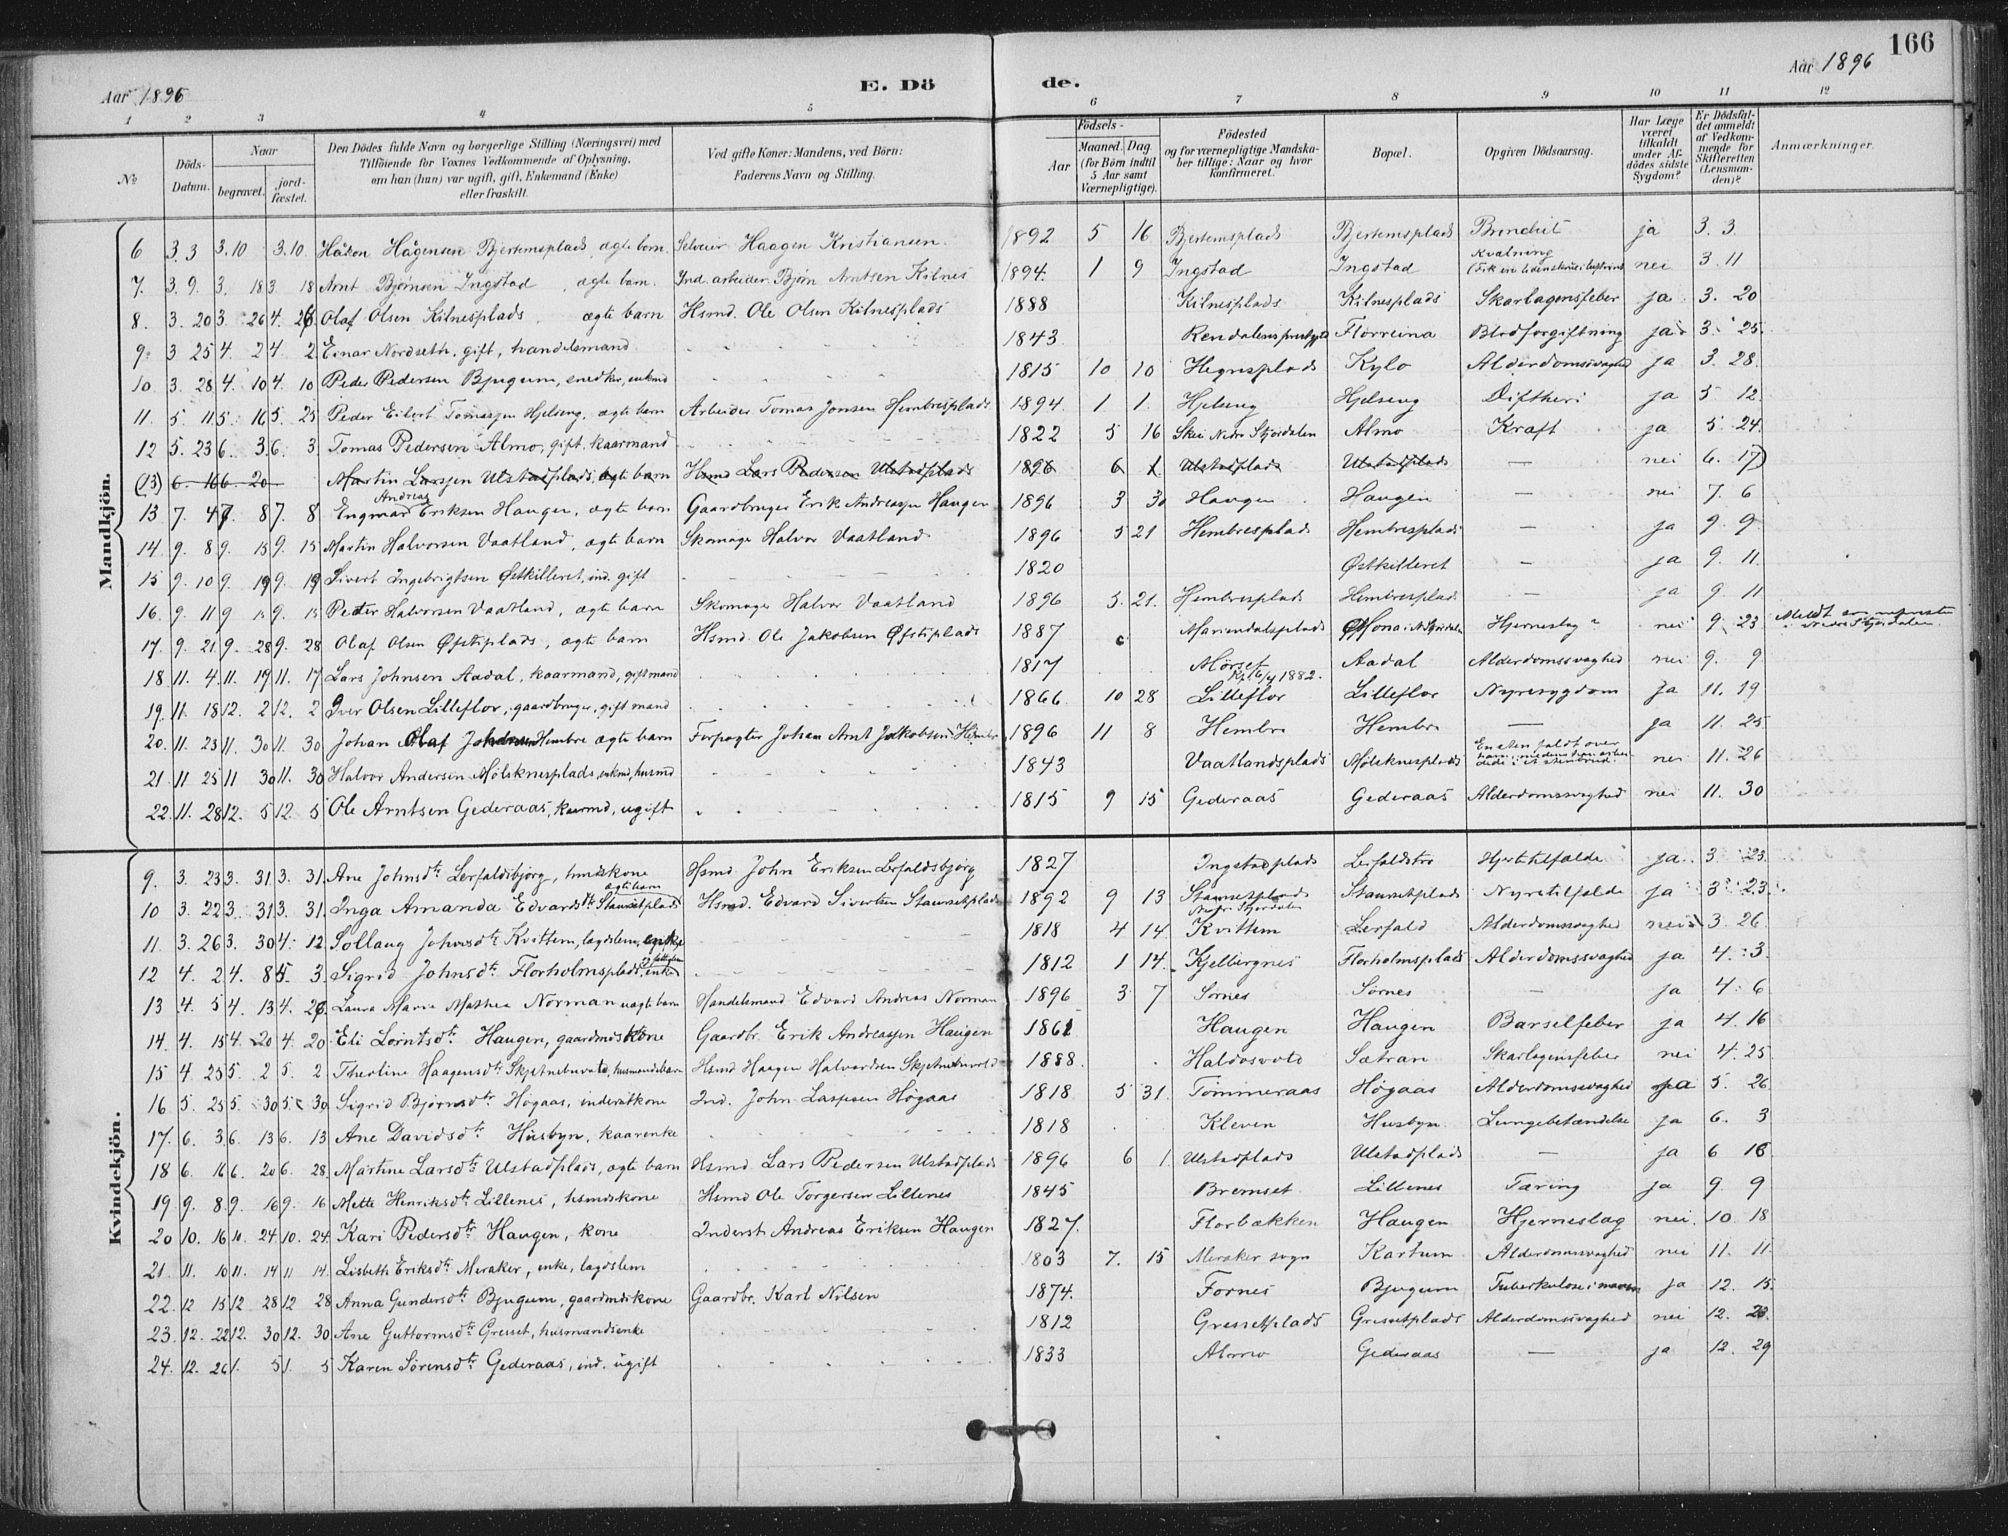 166
Aar 1896
E. Döde.
Aar 1896
1 2 3 4 5 6 7 8 9 10 11 12
№
Döds-Datum.
Naar
begravet.
jord-fæstet.
Den Dödes fulde Navn og borgerlige Stilling (Næringsvei) med
Tilföiende for Voxnes Vedkommende af Oplysning,
om han (hun) var ugift, gift, Enkemand (Enke)
eller fraskilt.
Ved gifte Koner: Mandens, ved Börn:
Faderens Navn og Stilling.
Födsels-
Aar
Maaned. Dag
(for Börn indtil
5 Aar samt
Værnepligtige).
Födested
og for værnepligtige Mandska-
ber tillige: Naar og hvor
Konfirmeret.
Bopæl.
Opgiven Dödsaarsag.
Har Læge
været
tilkaldt
under Af-
dödes sidste
Sygdom?
Er Dödsfal-
det anmeldt
af Vedkom-
mende for
Skifteretten
(Lensman-
den)?
Anmærkninger.
Mandkjön.
6 3. 3 3. 10 3. 10. Håkon Hågensen Bjertemsplads, ægte barn. Selveier Haagen Kristiansen 1892 5 16 Bjertemsplads Bjertemsplads ja 3. 3.
7. 3. 9. 3. 18 3 18 Arnt Bjørnsen Ingstad, ægte barn. Ind. arbeider Bjørn Arntsen Kilnes 1894. 1 9 Ingstad Ingstad Kvælning nei 3. 11
8. 3. 20 3. 26 4. 26 Olaf Olsen Kilnesplads, ægte barn Hsmd. Ole Olsen Kilnesplads 1888 Kilnesplads Kilnesplads Skarlagensfeber ja 3. 20
9. 3 25 4. 2 4. 2. Einar Nordseth, gift, handelsmand 1843 Florreina Blodforgiftning ja 3. 25.
10. 3. 28 4. 10 4. 10 Peder Pedersen Bjugum, snedker, enkmd 1815 10 10 Hegresplads Kylo Alderdomssvaghed ja 3. 28.
11. 5. 11 5. 16 5. 25 Peder Eilert Tomassen Hjelseng, ægte barn Arbeider Tomas Jonsen Hembresplads 1894. 1 1. Hjelseng Hjelseng Diftheri ja 5 12.
12 5. 23 6. 3 6. 3 Tomas Pedersen Almo, gift, kaarmand 1822 5 16 Skei Nedre Stjørdalen Almo Kræft ja 5. 24.
(13) 6. 16 6. 20 Martin Larssen Ulstadplads, ægte barn Hsmd Lars Pedersen Ulstadplads 1896 6 1 Ulstadplads Ulstadplads — nei 6. 17)
13 7. 4 7. 8 7. 8 Engmar Andreas Eriksen Haugen, ægte barn Gaardbruger Erik Andreassen Haugen 1896 3 30 Haugen Haugen — nei 7. 6
14. 9. 8 9. 15 9. 15 Martin Halvorsen Vaatland, ægte barn Skomager Halvor Vaatland 1896 5 21 Hembresplads Hembresplads — ja 9. 9
15 9. 10 9. 19 9. 19 Sivert Ingebrigtsen Østkilleret, ind. gift 1820 Østkilleret — ja 9. 11.
16. 9. 11 9 15 9. 15 Peder Halvorsen Vaatland, ægte barn Skomager Halvor Vaatland 1896 5. 21. Hembresplads Hembresplads — ja 9. 11
17. 9. 21 9. 28 9. 28 Olaf Olsen Øfstiplads, ægte barn Hsmd. Ole Jakobsen Øfstiplads 1887 Mariendalsplads Hjerneslag nei 9. 23 Meldt Nedre Stjørdalen.
18 11. 4. 11. 17 11. 17 Lars Johnsen Aadal, kaarmand, gift mand 1817 Mørset Aadal Alderdomssvaghed nei 9. 9
19. 11. 18 12. 2 12. 2 Iver Olsen Lilleflor, gaardbruger, gift mand 1866. 10 28 Kf. 16/4 1882. Lilleflor Lilleflor Nyresygdom ja 11. 19
20. 11. 23 11. 30 11. 30 Johan Olaf Johansen Hembre ægte barn Forpagter Johan Arnt Jakobsen Hembre 1896 11 8 Hembre Hembre — ja 11. 25
21. 11 25 11 30 11. 30 Halvor Andersen Mølsknesplads, enkmd, husmd 1843 Vaatlandsplads Mølsknesplads En sten faldt over
ham medens han arbei
dede i et stenbrud nei 11. 26
22. 11. 28 12. 5 12. 5 Ole Arntsen Gederaas, kaarmd, ugift 1815 9 15 Gederaas Gederaas Alderdomssvaghed nei 11. 30
Kvindekjön.
9. 3. 23 3. 31 3. 31. Ane Johnsdtr Lerfaldsbjørg, hmdskone Hsmd John Eriksen Lerfaldsbjørg 1827 Ingstadplads Hjertetilfælde ja. 3 23.
10 3. 22 3. 31 3. 31. Inga Amanda Edvardsdtr Stamsetplads ægte barn Hsmd. Edvard Sivertsen Stamsetplads 1892 9 13 Stamsetplads Nedre Stjørdalen Stamsetplads Nyretilfælde ja 3 23.
11. 3. 26 3. 30 4. 12. Sollaug Johnsdtr Kvittem, lægdslem, enke 1818 4 14. Kvittem Lerfald Alderdomssvaghed nei 3. 26
12 4. 2 4. 8 5. 3. Sigrid Johnsdtr Florholmsplads, enke 1812 1 14. Kjelbergnes Florholmsplads Alderdomssvaghed ja 4. 3.
13 4. 5 4. 13 4. 26. Laura Marie Mathea Norman uægte barn Handelsmand Edvard Andreas Norman 1896 3 7 Sørnes Sørnes — ja 4. 6
14. 4. 15 4. 20 4. 20 Eli Lorntsdtr Haugen, gaardmdskone Gaardbr. Erik Andreassen Haugen 1861 Haugen Haugen Barselfeber ja 4. 16
15 4. 25 5. 2 5. 2 Theoline Haagensdtr, husmandsbarn Hsmd Haagen Halvardsen 1888. Haldosvold Sætran Skarlagensfeber nei 4. 25
16 5. 25 5. 30 5. 30 Sigrid Bjørnsdtr Høgaas, inderstkone Ind. John Laspesen Høgaas 1818 5 31. Tømmeraas Høgaas Alderdomssvaghed ja 5. 26
17. 6. 3 6. 13 6. 13 Ane Davidsdtr Husbyn, kaarenke 1818 Kleven Husbyn Lungebetændelse ja 6. 3
18 6. 16 6. 20 6. 28 Martine Larsdtr Ulstadplads, ægte barn Hsmd Lars Pedersen Ulstadplads 1896 6 1 Ulstadplads Ulstadplads — ja 6 16
19 9. 8 9. 16 9. 16 Mette Henriksdtr Lillenes, hsmdskone Hsmd Ole Torgersen Lillenes 1845 Bremset Lillenes Tæring ja 9. 9
20 10. 16 10. 24 10. 24. Kari Pedersdtr Haugen, kone Inderst Andreas Eriksen Haugen 1827. Florbækken Haugen Hjerneslag nei 10 18
21. 11. 10 11. 14 11 14. Lisbeth Eriksdtr Meraker, enke, lægdslem 1803 7. 15 Meraker sogn Kartum Alderdomssvaghed nei 11. 11.
22. 12 15 12 28 12 28 Anna Gundersdtr Bjugum, gaardmdskone Gaardbr. Karl Nilsen 1874. Fornes Bjugum Tuberkulose i maven ja 12. 15.
23. 12. 22 12. 30 12. 30 Ane Guttormsdtr Gresset, husmandsenke 1812 Gressetplads Gressetplads Alderdomssvaghed nei 12. 23.
24. 12. 26 1. 5 1. 5 Karen Sørensdtr Gederaas, ind. ugift 1833 Almo Gederaas — ja 12. 29